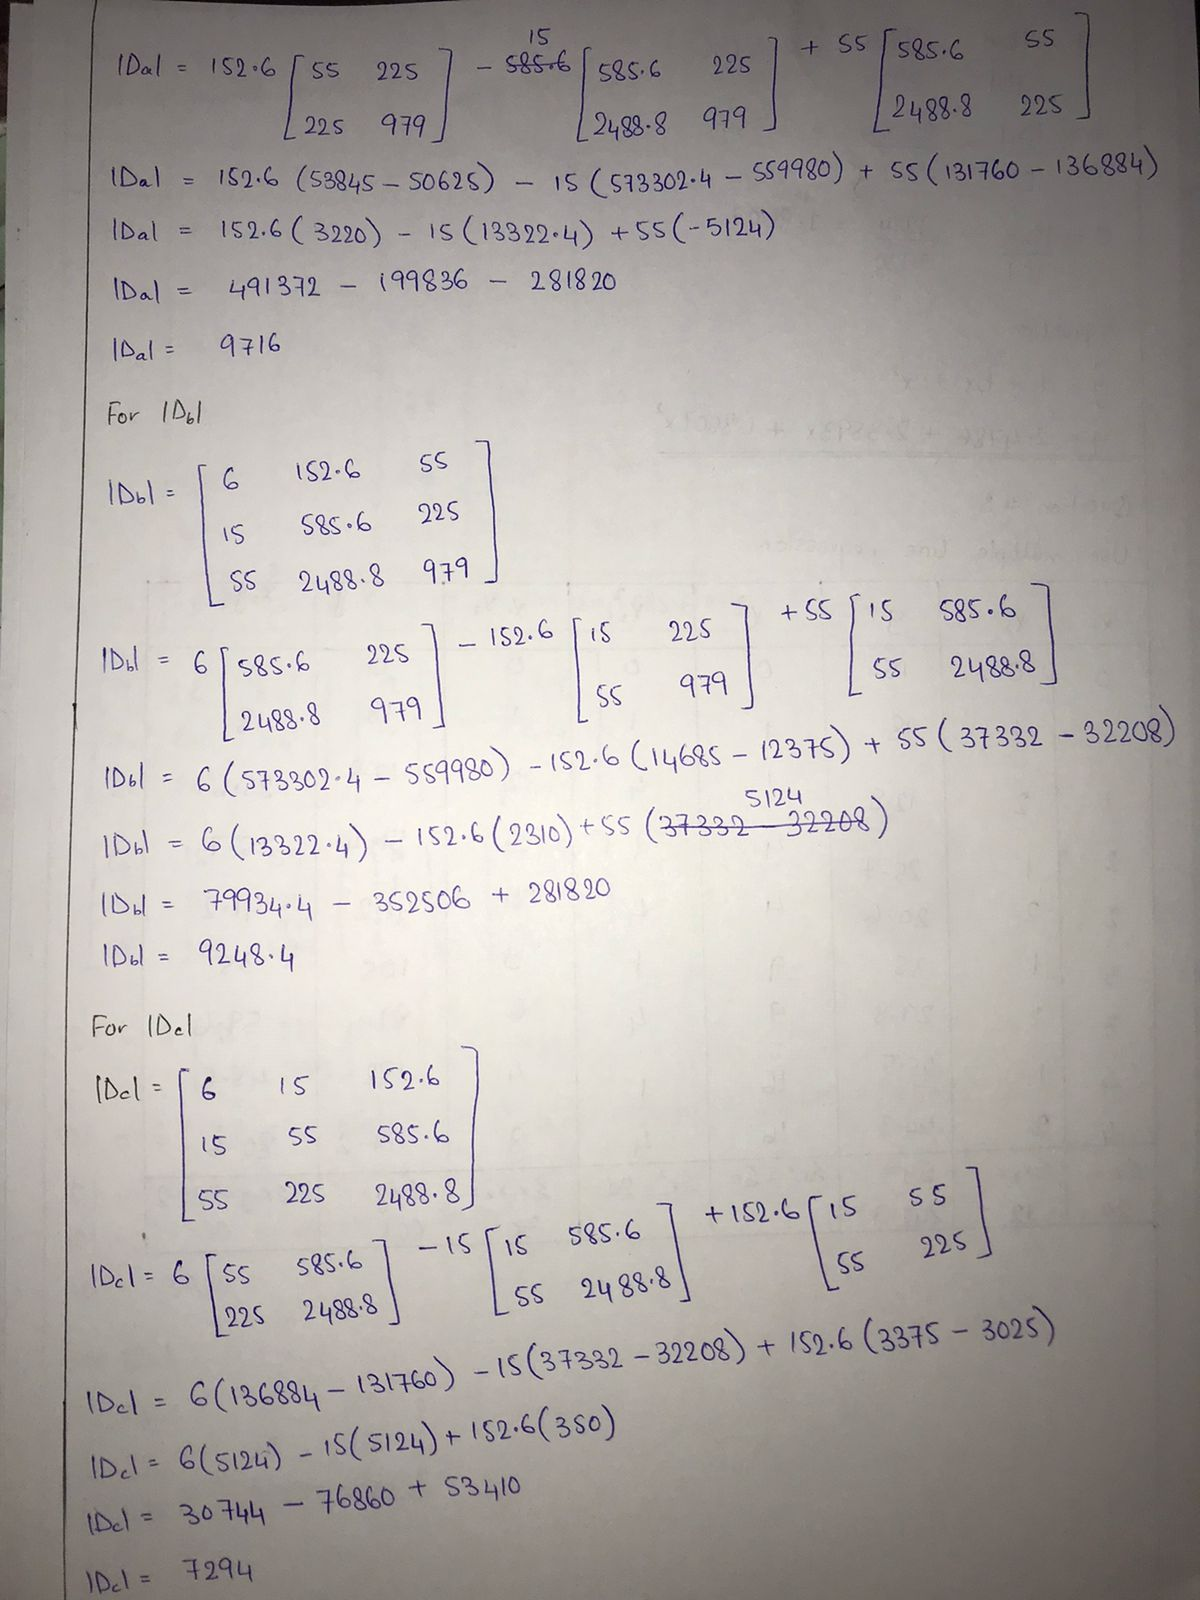 |Da| = 152.6 [55 225 - 15 585.6 [585.6 225 + 55 [585.6 55
225 979] 2488.8 979] 2488.8 225]
|Da| = 152.6 (53845 - 50625) - 15 (573302.4 - 559980) + 55 (131760 - 136884)
|Da| = 152.6 (3220) - 15 (13322.4) + 55 (-5124)
|Da| = 491372 - 199836 - 281820
|Da| = 9716
For |Db|
|Db| = [6 152.6 55
15 585.6 225
55 2488.8 979]
|Db| = 6 [585.6 225 - 152.6 [15 225 + 55 [15 585.6
2488.8 979] 55 979] 55 2488.8]
|Db| = 6 (573302.4 - 559980) - 152.6 (14685 - 12375) + 55 (37332 - 32208)
5124
|Db| = 6 (13322.4) - 152.6 (2310) + 55 (37332 - 32208)
|Db| = 79934.4 - 352506 + 281820
|Db| = 9248.4
For |Dc|
|Dc| = [6 15 152.6
15 55 585.6
55 225 2488.8]
|Dc| = 6 [55 585.6 - 15 [15 585.6 + 152.6 [15 55
225 2488.8] 55 2488.8] 55 225]
|Dc| = 6 (136884 - 131760) - 15 (37332 - 32208) + 152.6 (3375 - 3025)
|Dc| = 6 (5124) - 15 (5124) + 152.6 (350)
|Dc| = 30744 - 76860 + 53410
|Dc| = 7294